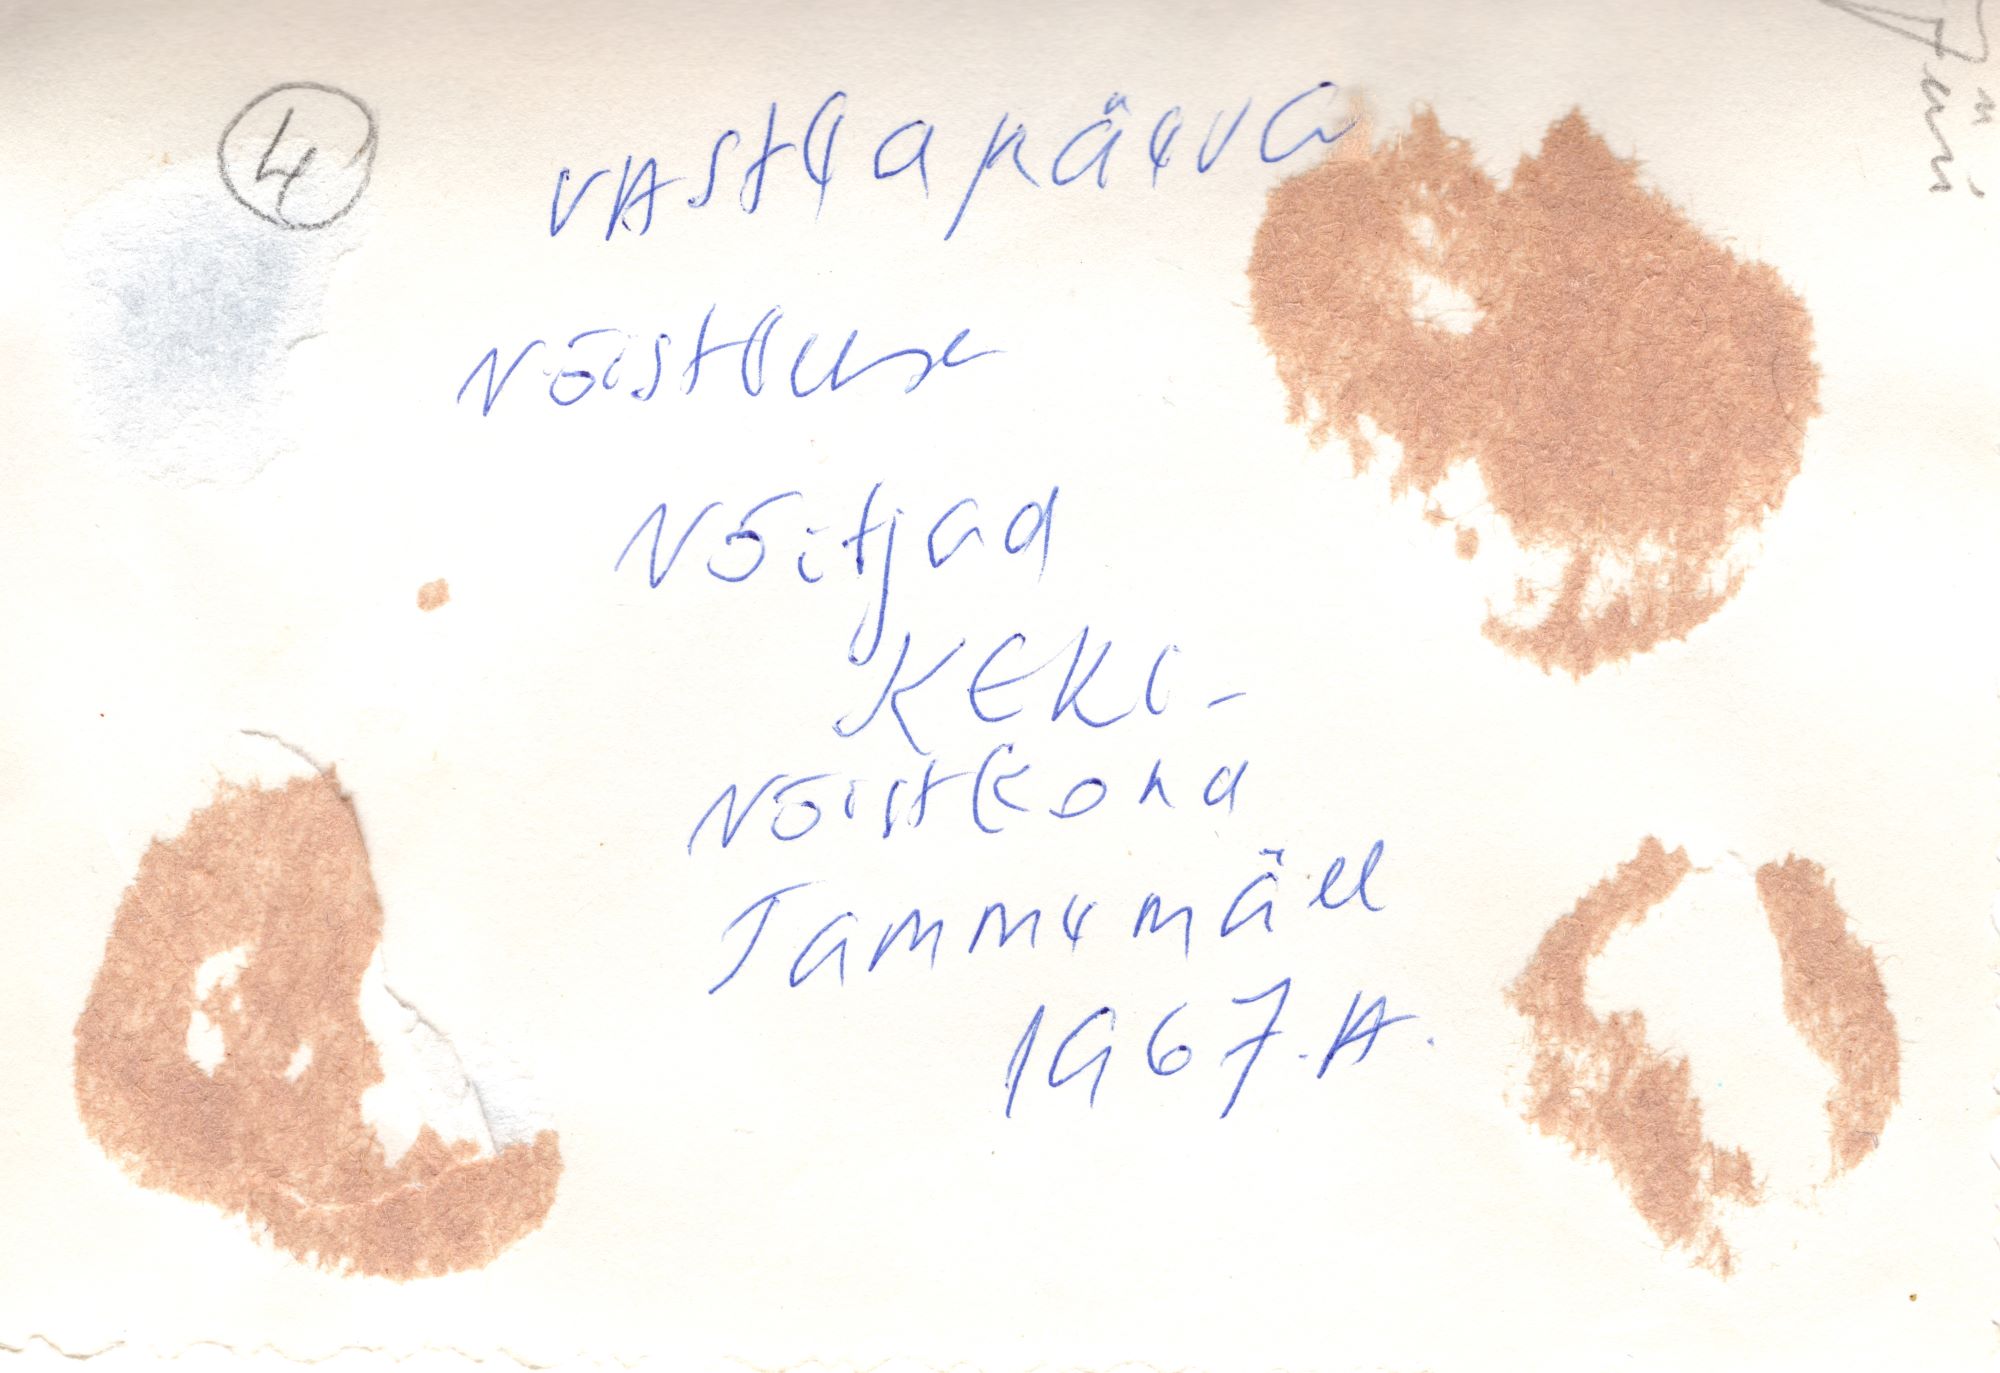 4
VAStlapäeva
Võistluse
Võitjad
KEKi-
Võistkond
Tammemäel
1967.A.